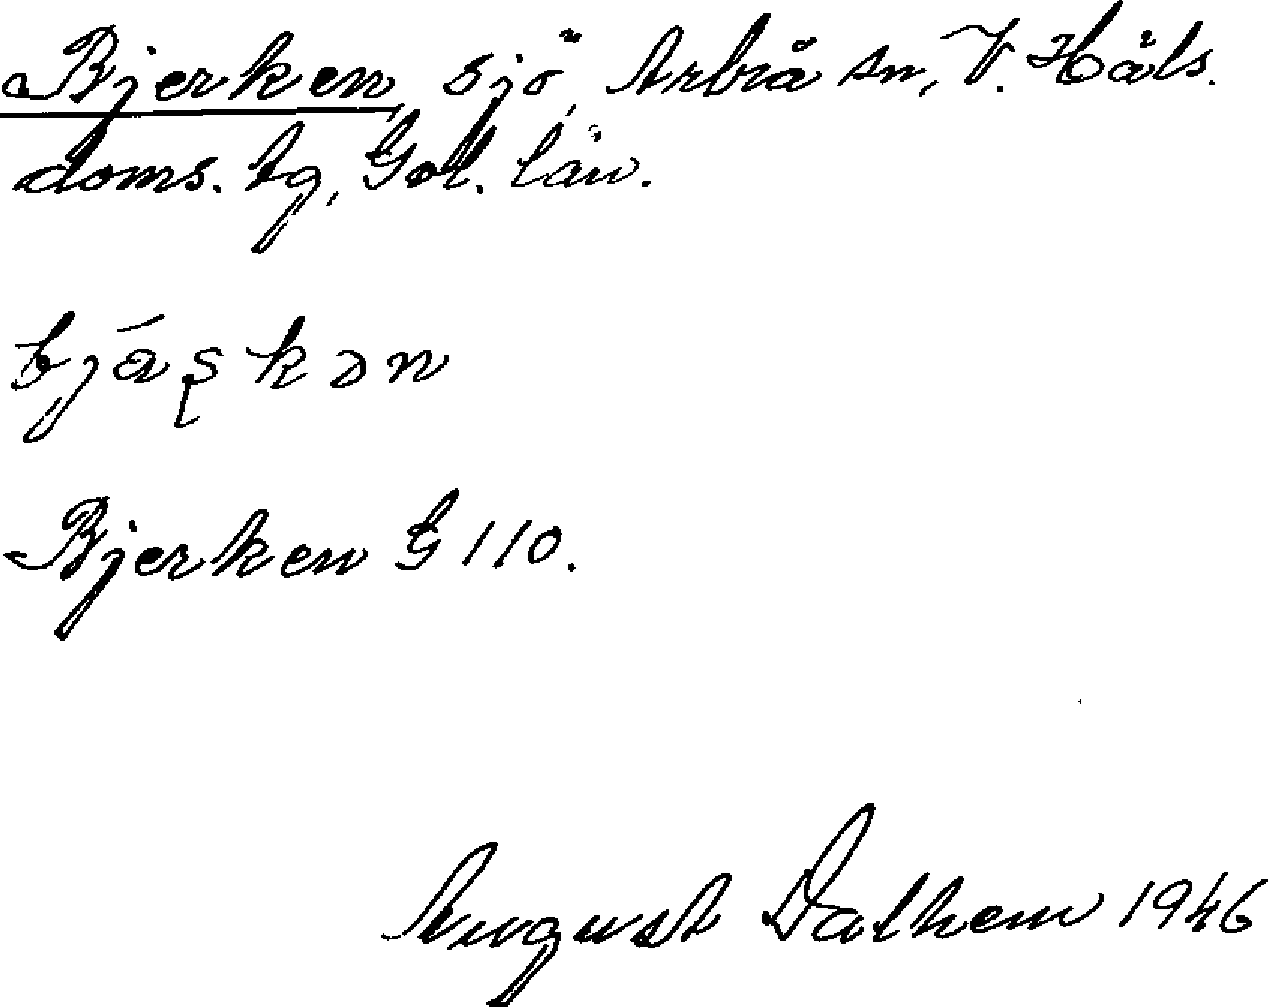 Bjerken, sjö, Arbrå sn, V. Häls.
doms. tg, Gvl. län.
bjáʂkən
Bjerken G 110.
August Dalhem 1946